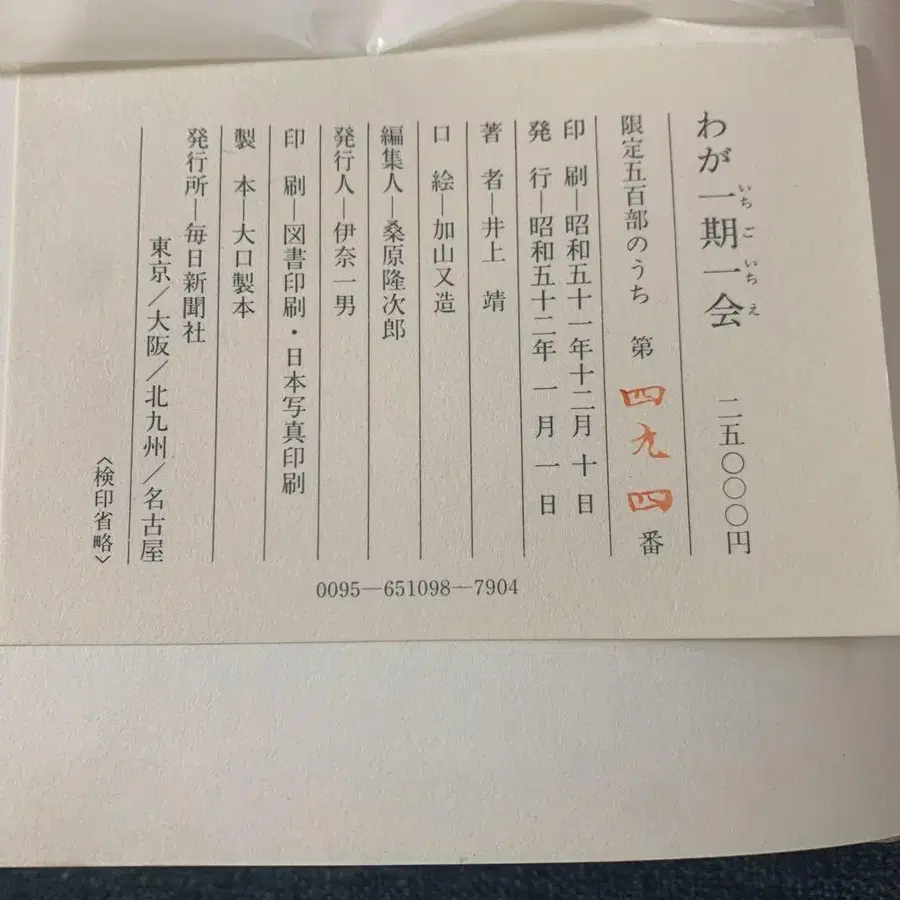 わが一期一会 二五〇〇〇円
いちごいちえ
限定五百部のうち 第四九四番
印刷―昭和五十一年十二月十日
発行―昭和五十二年一月一日
著者―井上 靖
口絵―加山又造
編集人―桑原隆次郎
発行人―伊奈一男
印刷―図書印刷・日本写真印刷
製本―大口製本
発行所―毎日新聞社
東京/大阪/北九州/名古屋
〈検印省略〉
0095―651098―7904